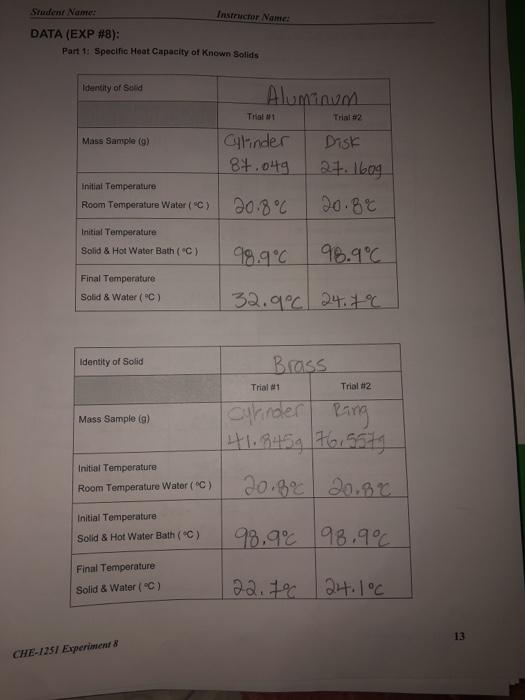 Student Name:
Instructor Name:
DATA (EXP #8):
Part 1: Specific Heat Capacity of Known Solids
Identity of Solid Aluminum
Trial #1 Trial #2
Mass Sample (g) Cylinder Disk
87.049 27.160g
Initial Temperature
Room Temperature Water (°C) 20.8°C 20.8°C
Initial Temperature
Solid & Hot Water Bath (°C) 98.9°C 98.9°C
Final Temperature
Solid & Water (°C) 32.9°C 24.7°C
Identity of Solid Brass
Trial #1 Trial #2
Mass Sample (g) Cylinder Ring
41.845g 76.557g
Initial Temperature
Room Temperature Water (°C) 20.8°C 20.8°C
Initial Temperature
Solid & Hot Water Bath (°C) 98.9°C 98.9°C
Final Temperature
Solid & Water (°C) 22.7°C 24.1°C
CHE-1251 Experiment 8
13